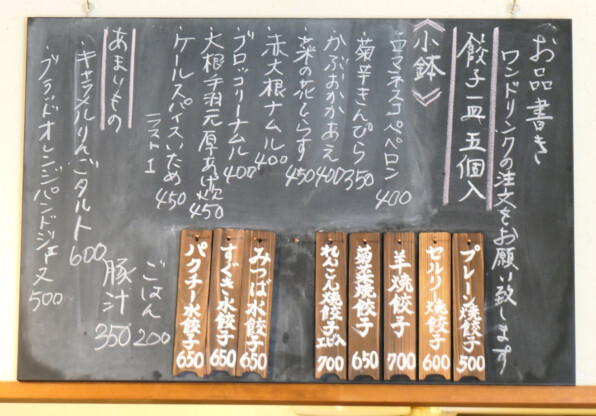 お品書き
ワンドリンクの注文をお願い致します
餃子一皿五個入
《小鉢》
ロマネスコペペロン 400
菊芋きんぴら 350
かぶおかかあえ 400
菜の花としらす 450
赤大根ナムル 400
ブロッコリーナムル 400
大根手羽元厚あげ炊 450
ケールスパイスいため 450
ラスト1
あまいもの
キャラメルりんごタルト 600
ブラッドオレンジパンドジェヌ 500
ごはん 200
豚汁 350
プレーン焼餃子 500
セルリー焼餃子 600
羊焼餃子 700
菊芋焼餃子 650
れんこん焼餃子エビ入 700
みつば水餃子 650
すぐき水餃子 650
パクチー水餃子 650